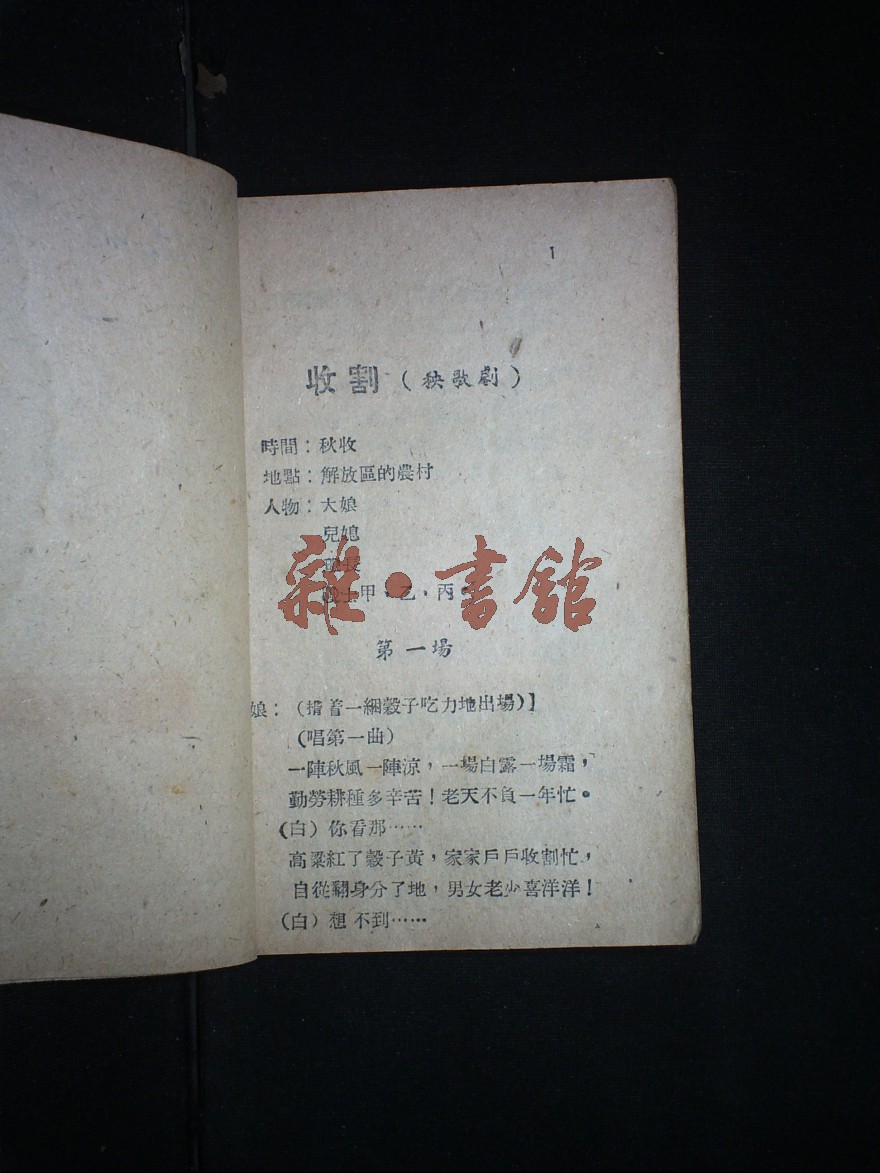 1
收割（秧歌劇）
時間：秋收
地點：解放區的農村
人物：大娘
兒媳
長
士甲，乙，丙。
雜·書館
第一場
娘：（揹着一綑穀子吃力地出場）】
（唱第一曲）
一陣秋風一陣涼，一場白露一場霜，
勤勞耕種多辛苦！老天不負一年忙。
（白）你看那……
高粱紅了穀子黃，家家戶戶收割忙，
自從翻身分了地，男女老少喜洋洋！
（白）想不到……